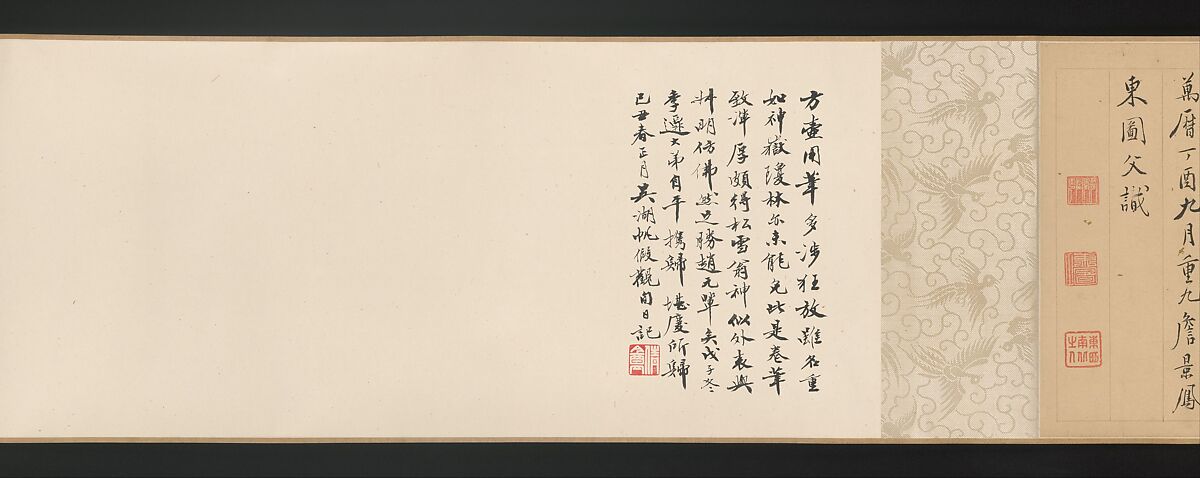 萬曆丁酉九月重九詹景鳳
東圖父識
方壺用筆多涉狂放雖名重
如神嶽瓊林亦未能免此是卷筆
致渾厚頗得松雪翁神似外表與
叔明仿佛然已勝趙元輩矣戊子冬
季遷大弟自平攜歸堪慶所歸
己丑春正月吳湖帆假觀旬日記